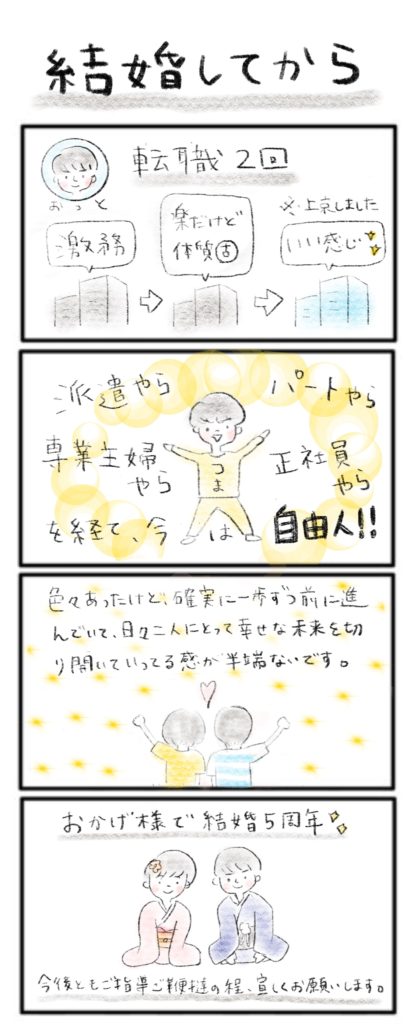 結婚してから
転職2回
おっと
激務
楽だけど
体質㊁
※上京しました
いい感じ
派遣やら
パートやら
専業主婦
やら
正社員
やら
つま
を経て、今は
自由人!!
色々あったけど、確実に一歩ずつ前に進
んでいて、日々二人にとって幸せな未来を切
り開いていってる感が半端ないです。
おかげ様で結婚5周年
今後ともご指導ご鞭撻の程、宜しくお願いします。